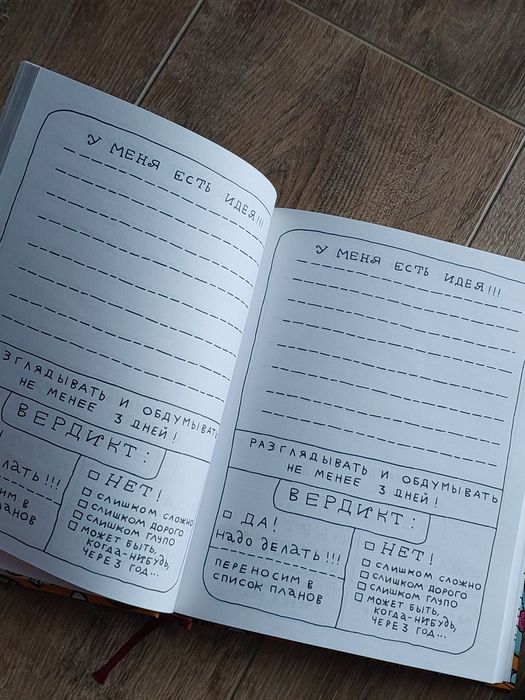 У МЕНЯ ЕСТЬ ИДЕЯ!!!
ЗГЛЯДЫВАТЬ И ОБДУМЫВАТЬ
НЕ МЕНЕЕ 3 ДНЕЙ!
ВЕРДИКТ:
лать!!!
им в
планов
НЕТ!
СЛИШКОМ СЛОЖНО
СЛИШКОМ ДОРОГО
СЛИШКОМ ГЛУПО
МОЖЕТ БЫТЬ,
КОГДА-НИБУДЬ,
ЧЕРЕЗ 3 ГОД...
У МЕНЯ ЕСТЬ ИДЕЯ!!!
РАЗГЛЯДЫВАТЬ И ОБДУМЫВАТЬ
НЕ МЕНЕЕ 3 ДНЕЙ!
ВЕРДИКТ:
ДА!
НАДО ДЕЛАТЬ!!!
ПЕРЕНОСИМ В
СПИСОК ПЛАНОВ
НЕТ!
СЛИШКОМ СЛОЖНО
СЛИШКОМ ДОРОГО
СЛИШКОМ ГЛУПО
МОЖЕТ БЫТЬ,
КОГДА-НИБУДЬ,
ЧЕРЕЗ 3 ГОД...